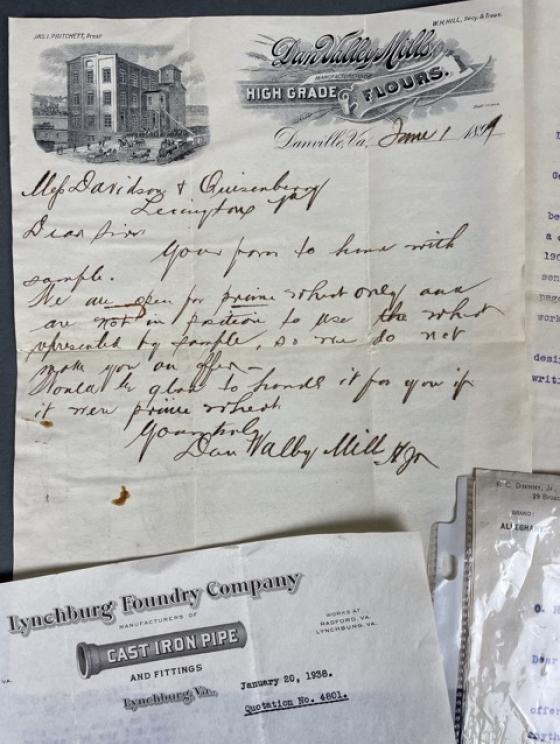 JAS. I. PRITCHETT, Prest
W.H. HILL, Secy. & Treas.
Dan Valley Mills
MANUFACTURERS OF
HIGH GRADE FLOURS.
Danville, Va. June 1 1899
Mess Davidson & Quisenberry
Lexington
Dear Sirs
Your favor to hand with
sample.
We are open for prime wheat only and
are not in position to use the wheat
represented by sample, so we do not
make you an offer.
Would be glad to handle it for you if
it were prime wheat
Yours truly
Dan Valley Mill
Lynchburg Foundry Company
MANUFACTURERS OF
CAST IRON PIPE
AND FITTINGS
Lynchburg, Va.,
WORKS AT
RADFORD, VA.
LYNCHBURG, VA.
VA.
January 20, 1938.
Quotation No. 4801.
be
a c
190
sen
page
work
desi
writi
BRAND:
ALLEGHANY
O. H
Dear
offer
anyth